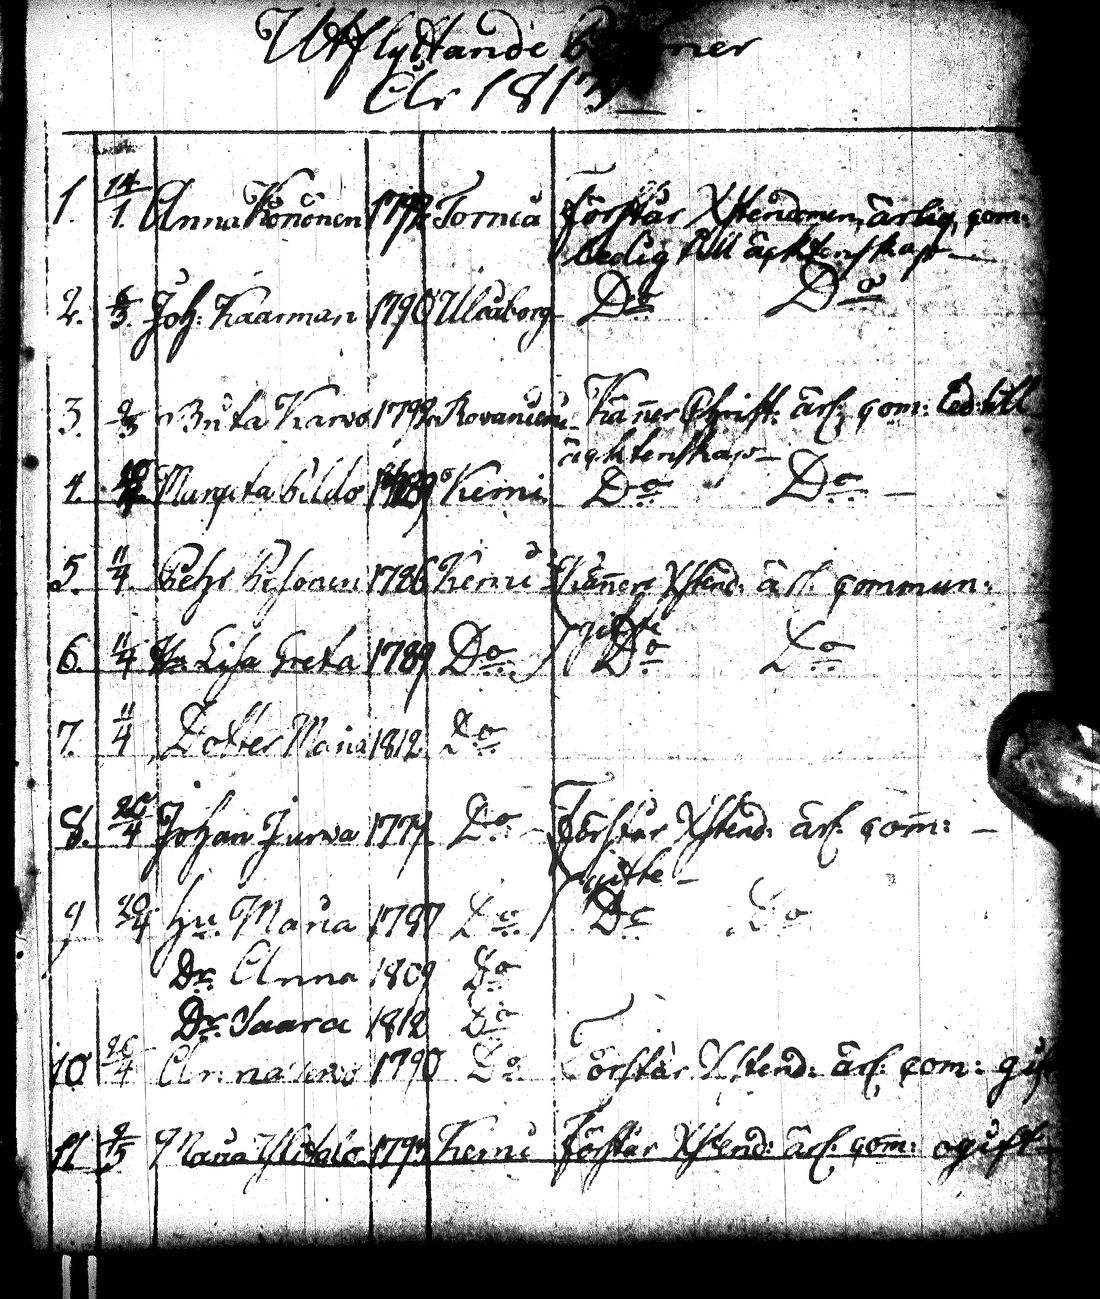 Utflyttande
År 1813
1. 14/1. Anna Kononen 1792 Torneå Förstår Xstendomen, ärlig, qom:
ledig till äcktenskap
2. 6/3. Joh: Kaarman 1790 Uleåborg Do Do
3. 2/3 Brita Karvo 1792 Rovaniemi Käner Christ: ärl: qom: Led: till
äcktenskap
4. Margeta 1789 Kemi Do Do
5. 11/4. Pehr 1786 Kemi Käner Xstend: ärl: qommun:
gifte
6. 11/4 Hu Lisa Greta 1789 Do Do Do
7. 11/4 Dotter Maria 1812 Do
8. 20/4 Johan Jurva 1777. Do Förstår Xstend: ärl: qom:
gifte
9 20/4 Hu. Maria 1787 Do Do Do
Dr. Anna 1809 Do
Dr. Saara 1812 Do
10. 26/4 Anna 1790 Do Förstår Xstend: ärl: qom:
11. 2/5 Maria Kemi Förstår Xstend: ärl: qom: ogift